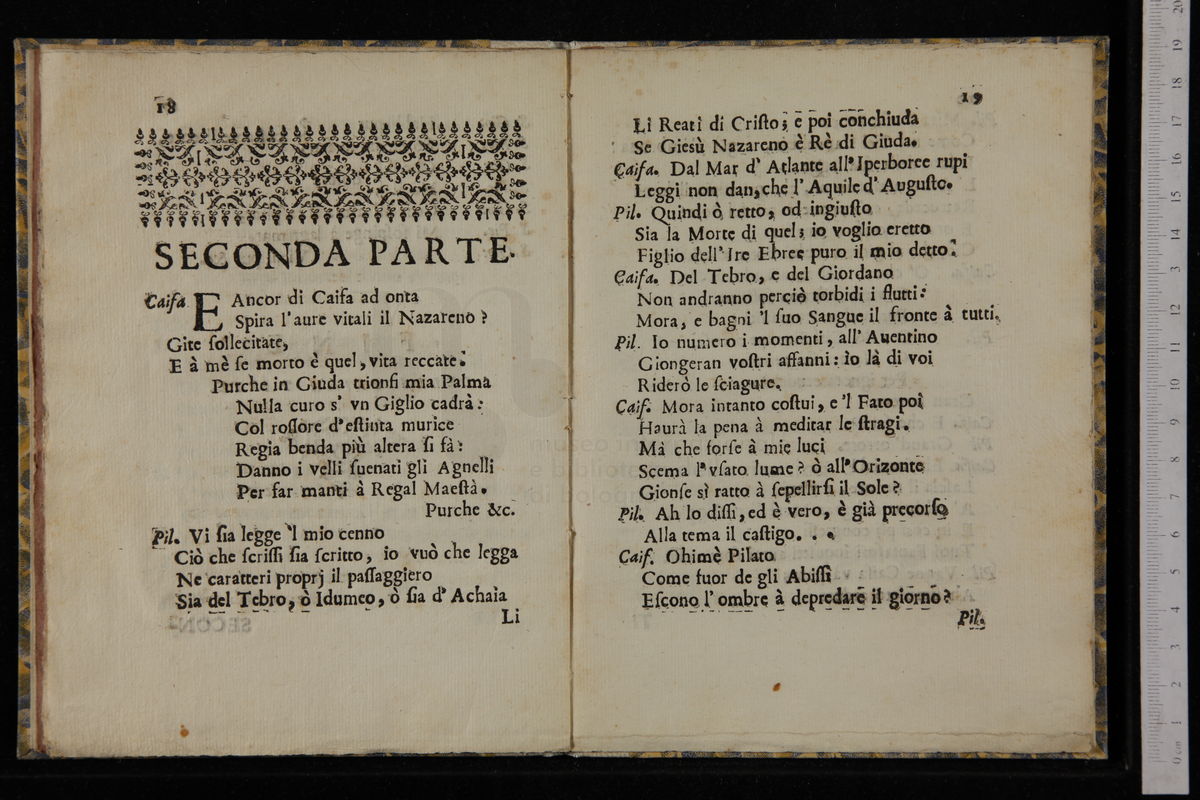 18
SECONDA PARTE.
Caifa E Ancor di Caifa ad onta
Spira l'aure vitali il Nazareno ?
Gite ſollecitate,
E à mè ſe morto è quel, vita reccate:
Purche in Giuda trionfi mia Palma
Nulla curo s' vn Giglio cadrà:
Col roſſore d'eſtinta murice
Regia benda più altera ſi fà:
Danno i velli ſuenati gli Agnelli
Per far manti à Regal Maeſtà.
Purche &c.
Pil. Vi ſia legge 'l mio cenno
Ciò che ſcriſſi ſia ſcritto, io vuò che legga
Ne caratteri proprj il paſſaggiero
Sia del Tebro, ò Idumeo, ò ſia d' Achaia
Li
19
Li Reati di Criſto; e poi conchiuda
Se Giesù Nazareno è Rè di Giuda.
Caifa. Dal Mar d' Atlante all' Iperboree rupi
Leggi non dan, che l' Aquile d' Auguſto.
Pil. Quindi ò retto, od ingiuſto
Sia la Morte di quel; io voglio eretto
Figlio dell' Ire Ebree puro il mio detto:
Caifa. Del Tebro, e del Giordano
Non andranno perciò torbidi i flutti:
Mora, e bagni 'l ſuo Sangue il fronte à tutti.
Pil. Io numero i momenti, all' Auentino
Giongeran voſtri affanni: io là di voi
Riderò le ſciagure.
Caif. Mora intanto coſtui, e 'l Fato poi
Haurà la pena à meditar le ſtragi.
Mà che forſe à mie luci
Scema l' vſato lume? ò all' Orizonte
Gionſe sì ratto à ſepellirſi il Sole?
Pil. Ah lo diſſi, ed è vero, è già precorſo
Alla tema il caſtigo. . .
Caif. Ohimè Pilato
Come fuor de gli Abiſſi
Eſcono l' ombre à depredare il giorno?
Pil.